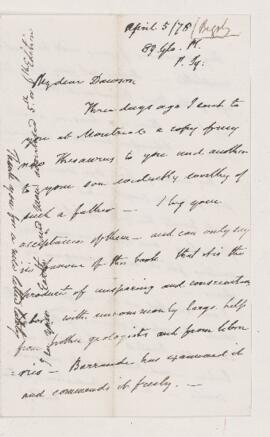 April 5/78 / Bigsby
89 Glo. Pl.
P. Sq.
My dear Dawson
Three days ago I sent to
you at Montreal a copy of my
new Thesaurus to you and another
to your son worthy of
such a father — I beg your
acceptance of them — and can only say
in favour of this book that it is the
product of unsparing and conscientious
labor — with uncommonly large help
from brother geologists and from
Barrande has examined it
and commends it freely. —
Thank you for a nice letter
Edition